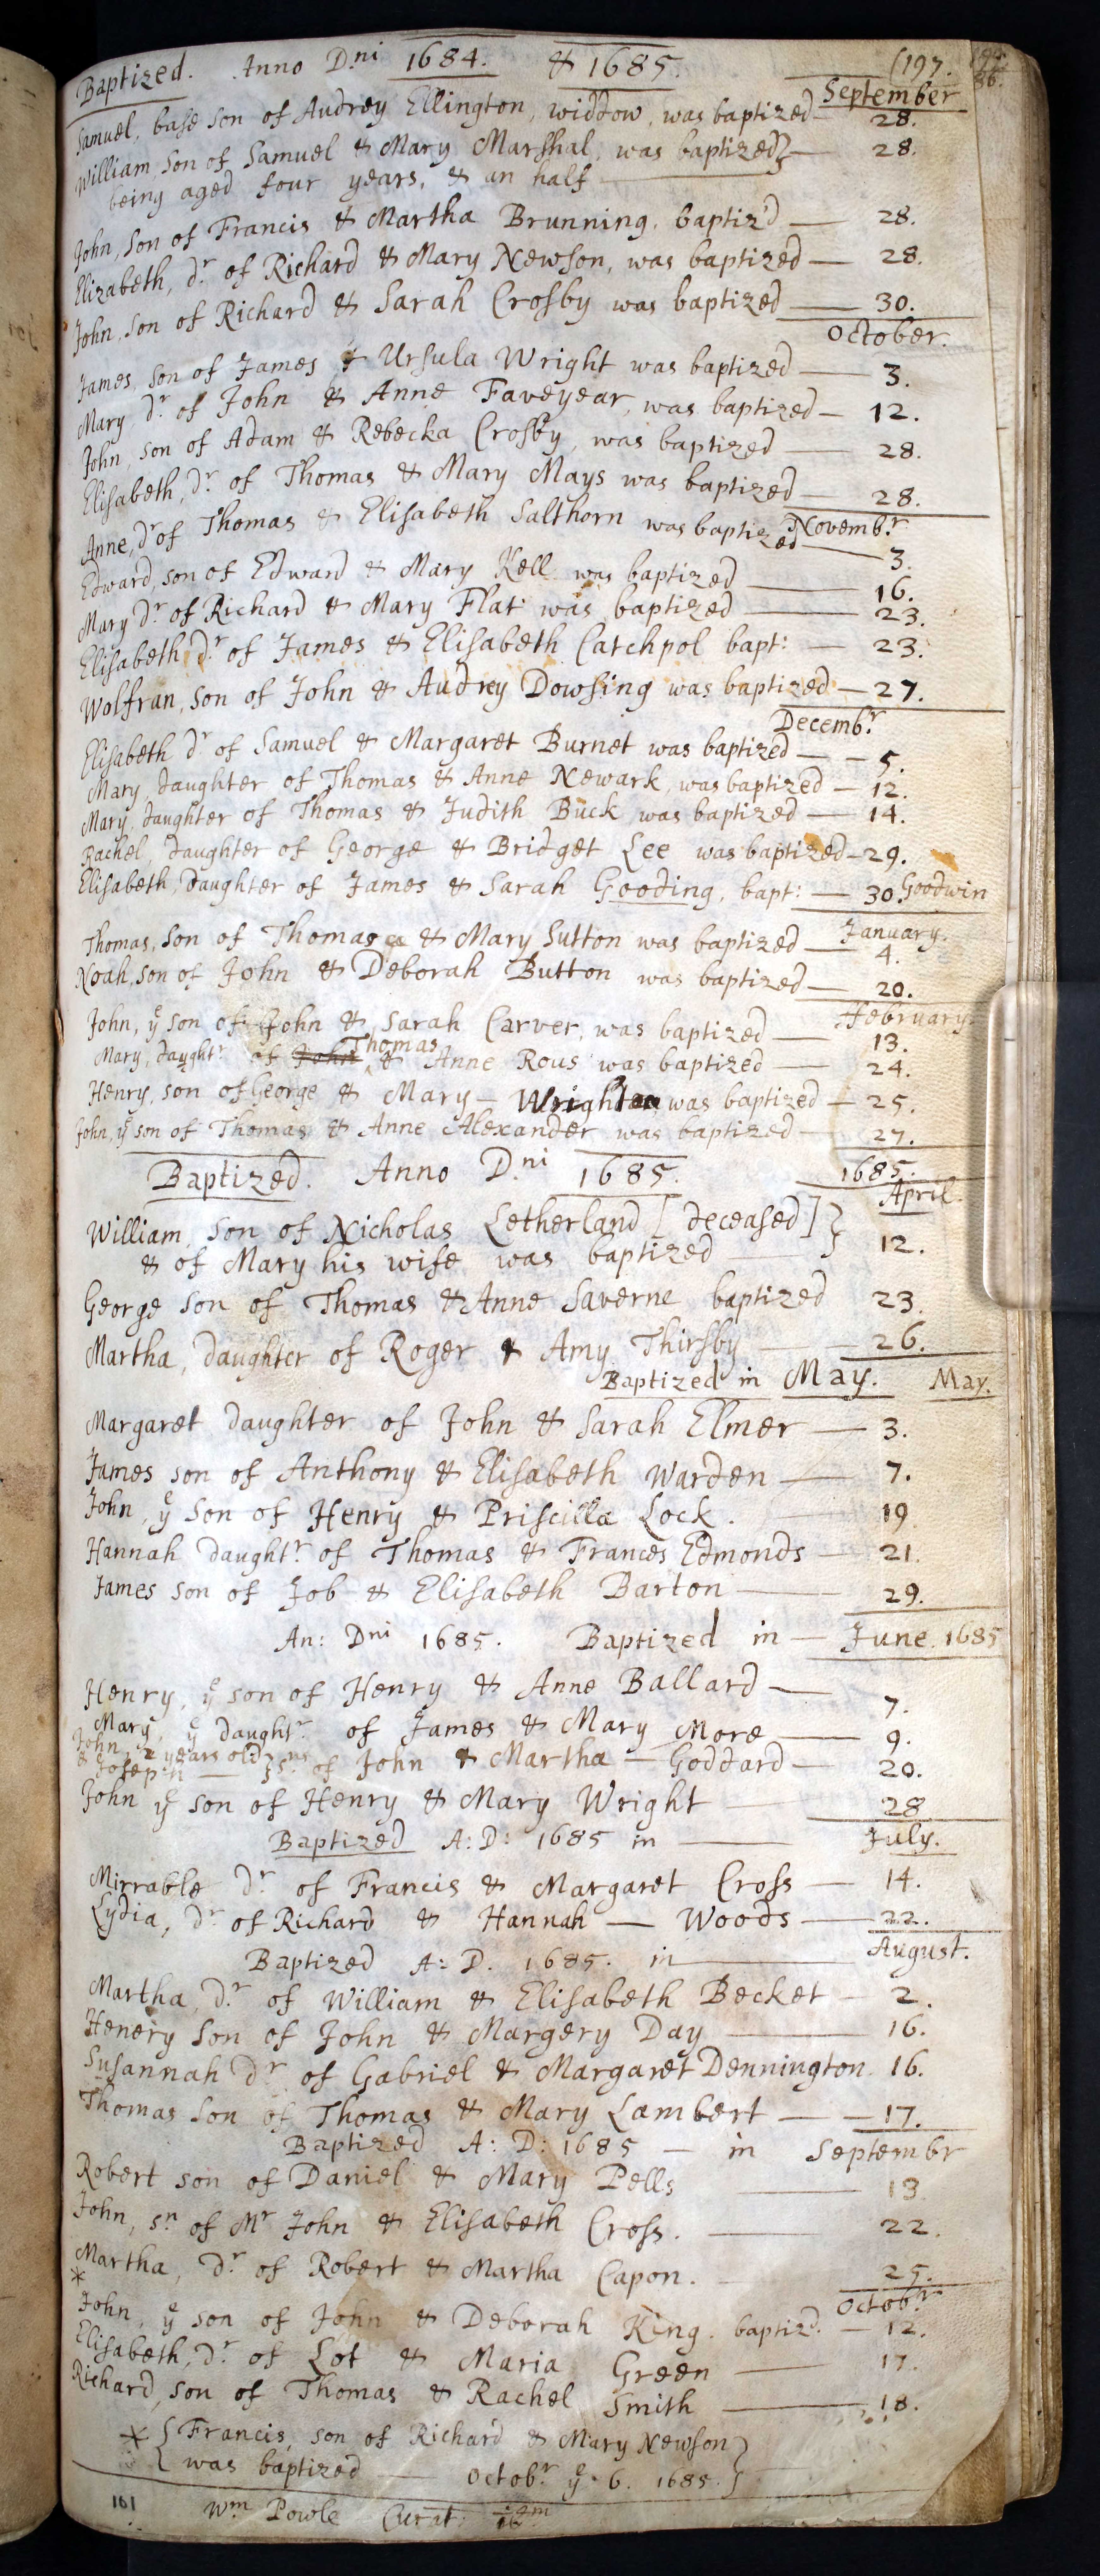 Baptized. Anno D.ni 1684. & 1685. (197.
September
Samuel, base son of Audrey Ellington, widdow, was baptized 28.
William, son of Samuel & Mary Marshal, was baptized} 28.
being aged four years, & an half
John, son of Francis & Martha Brunning, baptiz'd 28.
Elizabeth, d.r of Richard & Mary Newson, was baptized 28.
John, son of Richard & Sarah Crosby was baptized 30.
October.
James, son of James & Ursula Wright was baptized 3.
Mary d.r of John & Anne Faveyear, was baptized 12.
John, son of Adam & Rebecka Crosby, was baptized 28.
Elisabeth, d.r of Thomas & Mary Mays was baptized 28.
Novemb.r
Anne, d.r of Thomas & Elisabeth Salthorn was baptized 3.
Edward, son of Edward & Mary Kell was baptized 16.
Mary d.r of Richard & Mary Flat was baptized 23.
Elisabeth d.r of James & Elisabeth Catchpol bapt: 23.
Wolfran, son of John & Audrey Dowsing was baptized 27.
Decemb.r
Elisabeth d.r of Samuel & Margaret Burnet was baptized 5.
Mary, daughter of Thomas & Anne Newark, was baptized 12.
Mary, daughter of Thomas & Judith Buck was baptized 14.
Rachel, daughter of George & Bridget Lee was baptized 29.
Elisabeth, daughter of James & Sarah Gooding, bapt: 30. Goodwin
January.
Thomas, son of Thomas & Mary Sutton was baptized 4.
Noah, son of John & Deborah Button was baptized 20.
February
John, ye son of John & Sarah Carver, was baptized 13.
Mary, daught.r of John Thomas & Anne Rous was baptized 24.
Henry, son of George & Mary Wright was baptized 25.
John, ye son of Thomas & Anne Alexander was baptized 27.
Baptized. Anno D.ni 1685. 1685.
April.
William, son of Nicholas Letherland [deceased] }
& of Mary his wife was baptized } 12.
George son of Thomas & Anne Saverne baptized 23.
Martha, daughter of Roger & Amy Thirsby 26.
Baptized in May. May.
Margaret daughter of John & Sarah Elmer 3.
James son of Anthony & Elisabeth Warden 7.
John, ye son of Henry & Priscilla Lock. 19
Hannah daught.r of Thomas & Frances Edmonds 21.
James son of Job & Elisabeth Barton 29.
An: Dni 1685. Baptized in June. 1685
Henry, ye son of Henry & Anne Ballard 7.
Mary, ye daught.r of James & Mary More 9.
John, 2 years old
& Joseph } sns of John & Martha Goddard 20.
John ye son of Henry & Mary Wright 28
Baptized A: D: 1685 in July.
Mirrable d.r of Francis & Margaret Cross 14.
Lydia, d.r of Richard & Hannah Woods 22.
Baptized A: D. 1685. in August.
Martha, d.r of William & Elisabeth Becket 2.
Henery son of John & Margery Day 16.
Susannah d.r of Gabriel & Margaret Dennington 16.
Thomas son of Thomas & Mary Lambert 17.
Baptized A: D: 1685 in Septembr
Robert son of Daniel & Mary Pells 13
John, s.n of Mr John & Elisabeth Cross. 22.
Martha, d.r of Robert & Martha Capon. 25.
*
Octob.r
John, ye son of John & Deborah King. baptiz'd. 12.
Elisabeth, d.r of Lot & Maria Green 17.
Richard, son of Thomas & Rachel Smith 18.
* { Francis, son of Richard & Mary Newson }
{ was baptized Octob.r ye 6. 1685. }
161 Wm Powle Curat: